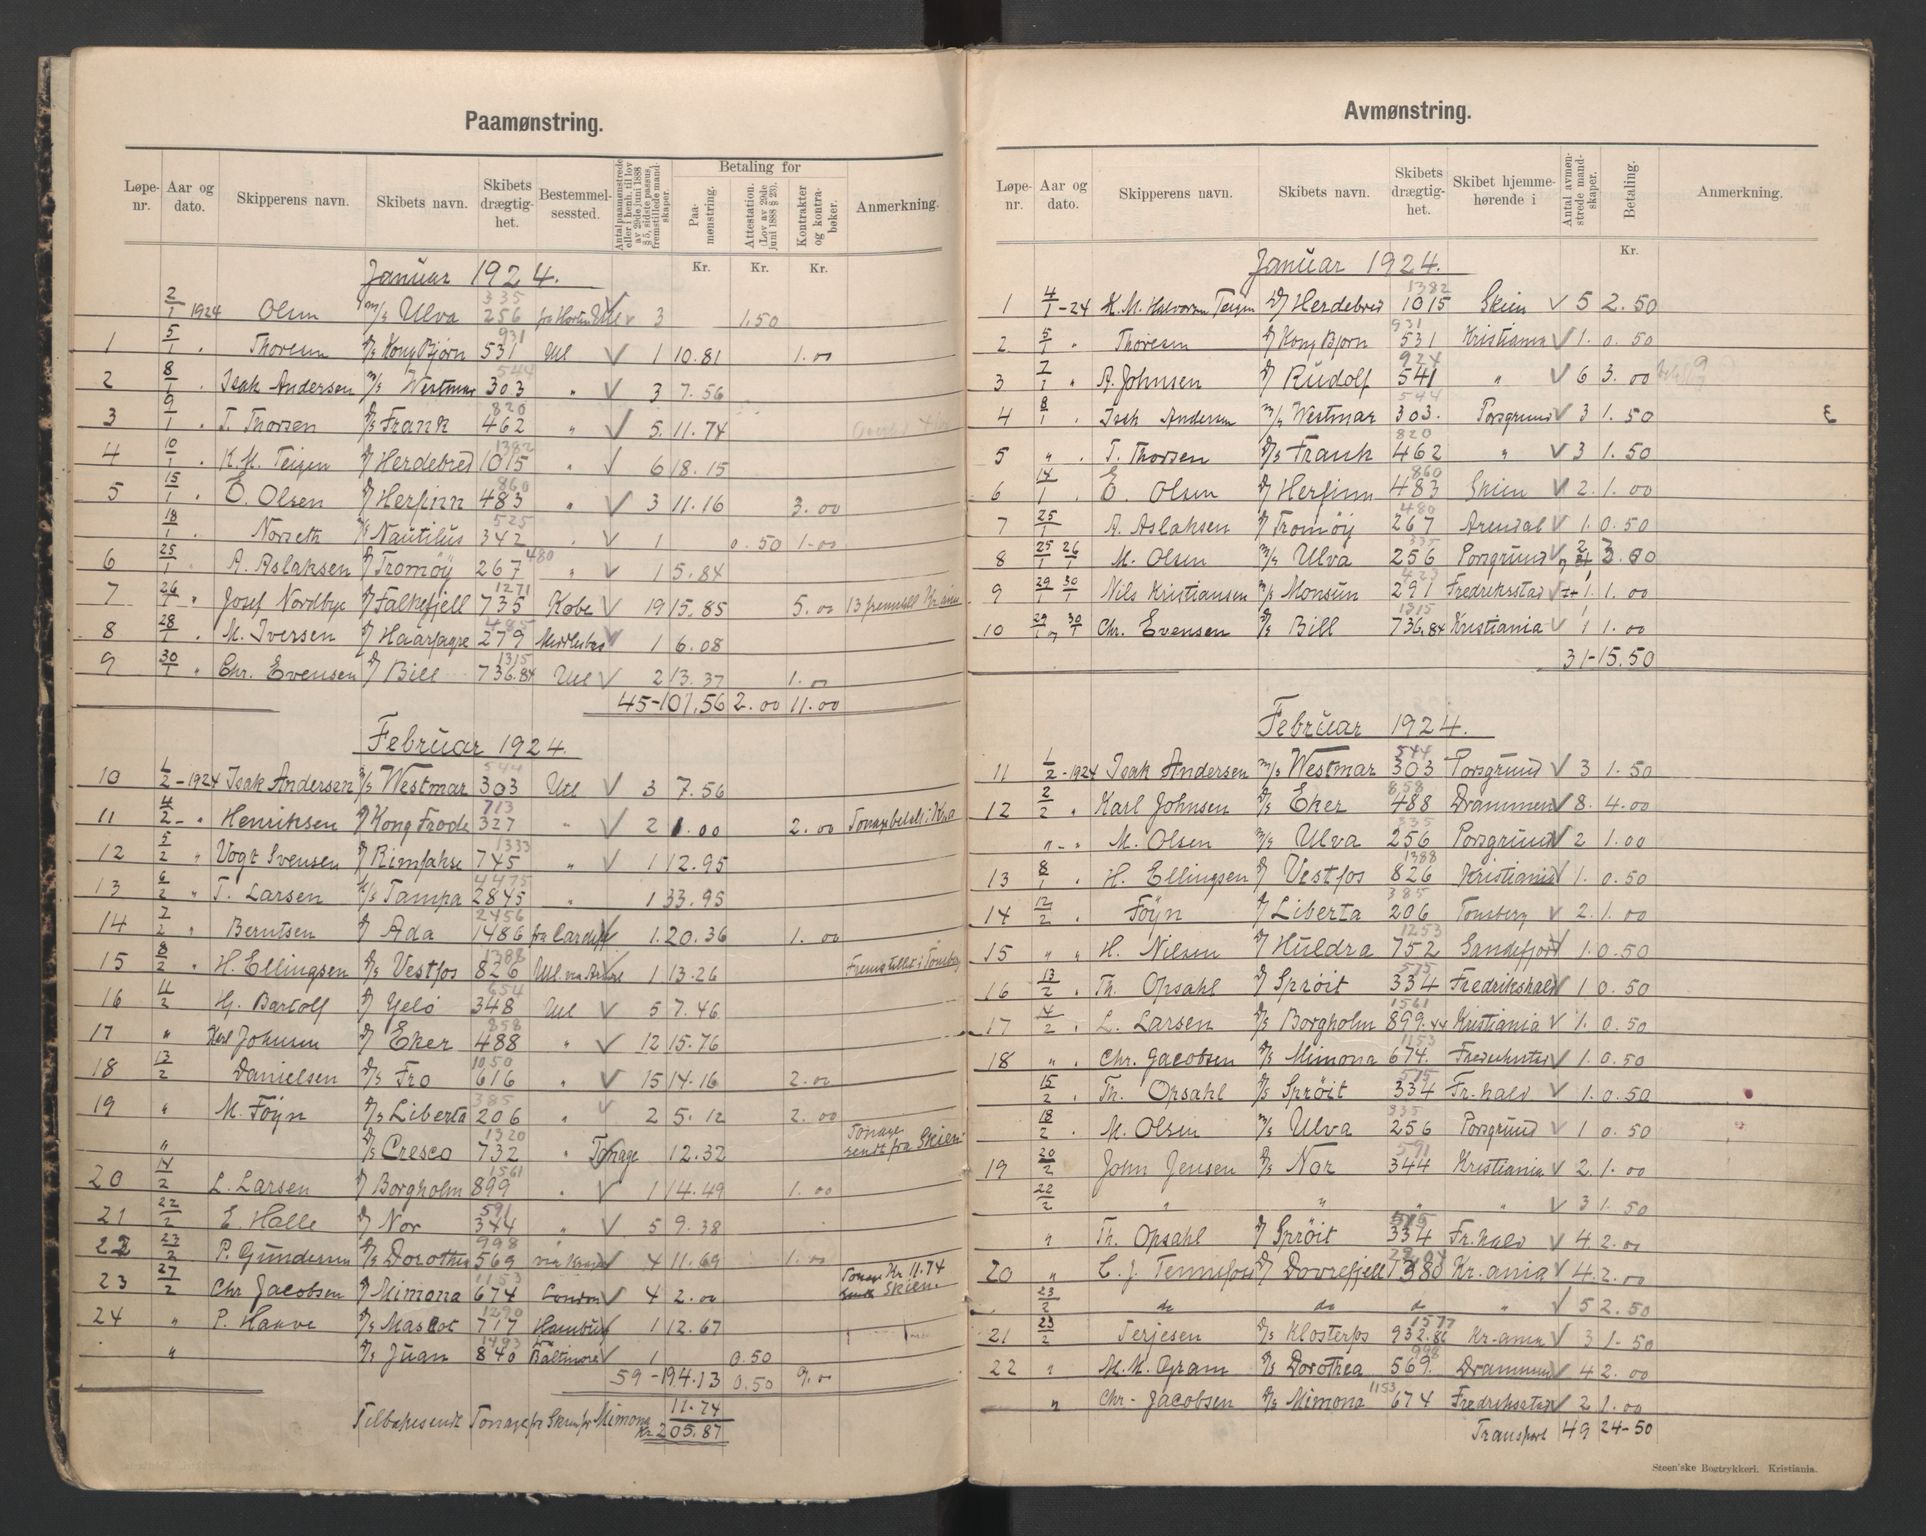 Paamønstring.
Løpe-nr. Aar og dato. Skipperens navn. Skibets navn. Skibets drægtig-het. Bestemmel-sessted. Antal paamønstrede eller henh. til lov av 29de juni 1888 § 5, sidste passus, fremstillede mand-skaper. Betaling for Paa-mønstring. Attestation. (Lov av 29de juni 1888 § 23). Kontrakter og kontra-bøker. Anmerkning.
Kr. Kr. Kr.
Januar 1924.
2/1 1924 Olsen M/S Ulva 335 256 fra Horten Utl v 3 1.50
1 5/1 " Thoresen D/S Kong Bjørn 931 531 Utl V 1 10.81 1.00
2 8/1 " Isak Andersen M/S Westmar 544 303 " V 3 7.56
3 9/1 " T. Thorsen D/S Frank 820 462 " V 5. 11.74
4 10/1 " K.M. Teigen D/S Herdebred 1382 1015 " V 6 18.15
5 15/1 " E. Olsen D/S Herfinn 860 483 " V 3 11.16 3.00
18/1 " Norseth M/S Nautilus 525 342 " V 1 0.50 1.00
6 25/1 A. Aslaksen D/S Tromøy 267 480 " V 1 5.84
7 26/1 " Josef Nordbye D/S Falkefjell 1271 735 Kobe V 19 15.85 5.00 13 fremstill
8 28/1 " M. Iversen D/S Haarfagre 485 279 Middlesbro V 1 6.08
9 30/1 " Chr. Evensen D/S Bill 1315 736.84 Utl V 2 13.37 1.00
45-107.56 2.00 11.00
Februar 1924.
10 1/2 - 1924 Isak Andersen M/S Westmar 544 303 Utl V 3 7.56
11 4/2 - " Henriksen D/S Kong Frode 713 327 " V 2 1.00 2.00 Tonage betalt i Kr.a
12 5/2 " Vogt Svensen D/S Rimfakse 1333 745 " V 1 12.95
13 6/2 " T. Larsen D/S Tampa 4475 2845 " 1 33.95
14 7/2 " Berntsen D/S Ada 2456 1486 fra Cardiff V 1. 20.36 1.00
15 8/2 " H. Ellingsen D/S Vestfos 1388 826 Utl. via V 1 13.26 Fremstillet i Tønsberg
16 11/2 Hj. Bartolf D/S Jelö 654 348 Utl V 5 7.46
17 " Karl Johnsen D/S Eker 858 488 " V 12 15.76
18 13/2 Danielsen D/S Fro 1050 616 " V 15 14.16 2.00
19 " M. Föyn D/S Liberta 385 206 " V 2 5.12 2.00
" D/S Cresco 1320 732 " Tonage 12.32 Tonage sendt fra Skien
20 14/2 L. Larsen D/S Borgholm 1561 899 " V 1 14.49 1.00
21 22/2 E. Halle D/S Nor 591 344 " V 5 9.38
22 23/2 P. Gundersen D/S Dorothea 998 569 via V 4 11.69 1.00
23 27/2 Chr Jacobsen D/S Mimona 1153 674 London V 4 2.00 Tonage Kr 11.74 Skien
24 " P. Haave D/S Mascot 1290 717 Hamburg V 1 12.67
" D/S Juan 1493 840 Baltimore V 1 0.50
59-194.13 0.50 9.00
11.74
Tilbakesendt Tonage fr Skien for Mimona Kr. 205.87
Avmønstring.
Løpe-nr. Aar og dato. Skipperens navn. Skibets navn. Skibets drægtig-het. Skibet hjemme-hørende i Antal avmøn-strede mand-skaper. Betaling. Anmerkning.
Kr.
Januar 1924.
1 4/1 - 24 K.M. Halvorsen Teigen D/S Herdebred 1382 1015 Skien V 5 2.50
2 5/1 " Thoresen D/S Kong Bjørn 931 531 Kristiania V 1. 0.50
3 7/1 " A. Johnsen D/S Rudolf 924 541 " V 6 3.00
4 8/1 " Isak Andersen M/S Westmar 544 303. Porsgrund V 3 1.50
5 " " T. Thorsen D/S Frank 820 462 " V 3 1.50
6 14/1 " E. Olsen D/S Herfinn 860 483 Skien V 2. 1.00
7 25/1 " A. Aslaksen D/S Tromøy 480 267 Arendal V 1. 0.50
8 25/1 26/1 M. Olsen M/S Ulva 335 256 Porsgrund V
9 29/1 30/1 Nils Kristiansen M/S Monsun 423 291 Fredriksstad V 1. 1.00
10 29/1 30/1 Chr. Evensen D/S Bill 1315 736.84 Kristiania V 1 1.00
31-15.50
Februar 1924.
11 1/2 - 1924 Isak Andersen M/S Westmar 544 303 Porsgrund V 3 1.50
12 2/2 " Karl Johnsen D/S Eker 858 488 Drammen V 8. 4.00
" - " M. Olsen M/S Ulva 335 256 Porsgrund V 2 1.00
13 8/1 " H. Ellingsen D/S Vestfos 1388 826 Kristiania V 1. 0.50
14 12/2 " Föyn D/S Liberta 385 206 Tønsberg V 2. 1.00
15 " " H. Nilsen D/S Huldra 1253 752 Sandefjord V 1 0.50
16 13/2 " Th. Opsahl D/S Sprøit 575 334 Fredrikshald V 1 0.50
17 14/2 " L. Larsen D/S Borgholm 1561 899.44 Kristiania V 1. 0.50
18 " " Chr. Jacobsen D/S Mimona 1153 674. Fredriksstad V 1. 0.50
15/2 " Th. Opsahl D/S Sprøit 575 334 Fr.hald V 1. 0.50
18/2 " M. Olsen M/S Ulva 335 256 Porsgrund V 1 0.50
19 20/2 John Jensen D/S Nor 591 344 Kristiania V 2. 1.00
22/2 " " " " V 3 1.50
" Th. Opsahl D/S Sprøit 575 334 Fr.hald V 4. 2.00
20 " C. J. Tennefoss D/S Dovrefjell 1380 Kr.ania V 4. 2.00
23/2 do do do " V 5 2.50
21 23/2 Terjesen D/S Klosterfos 1577 932.86 Kr.ania V 3 1.50
22 " M.K. Gram D/S Dorothea 998 569. Drammen V 4 2.00
" Chr. Jacobsen D/S Mimona 1153 674 Fredriksstad V 2 1.00
Transport 49 24-50
Steen'ske Bogtrykkeri. Kristiania.